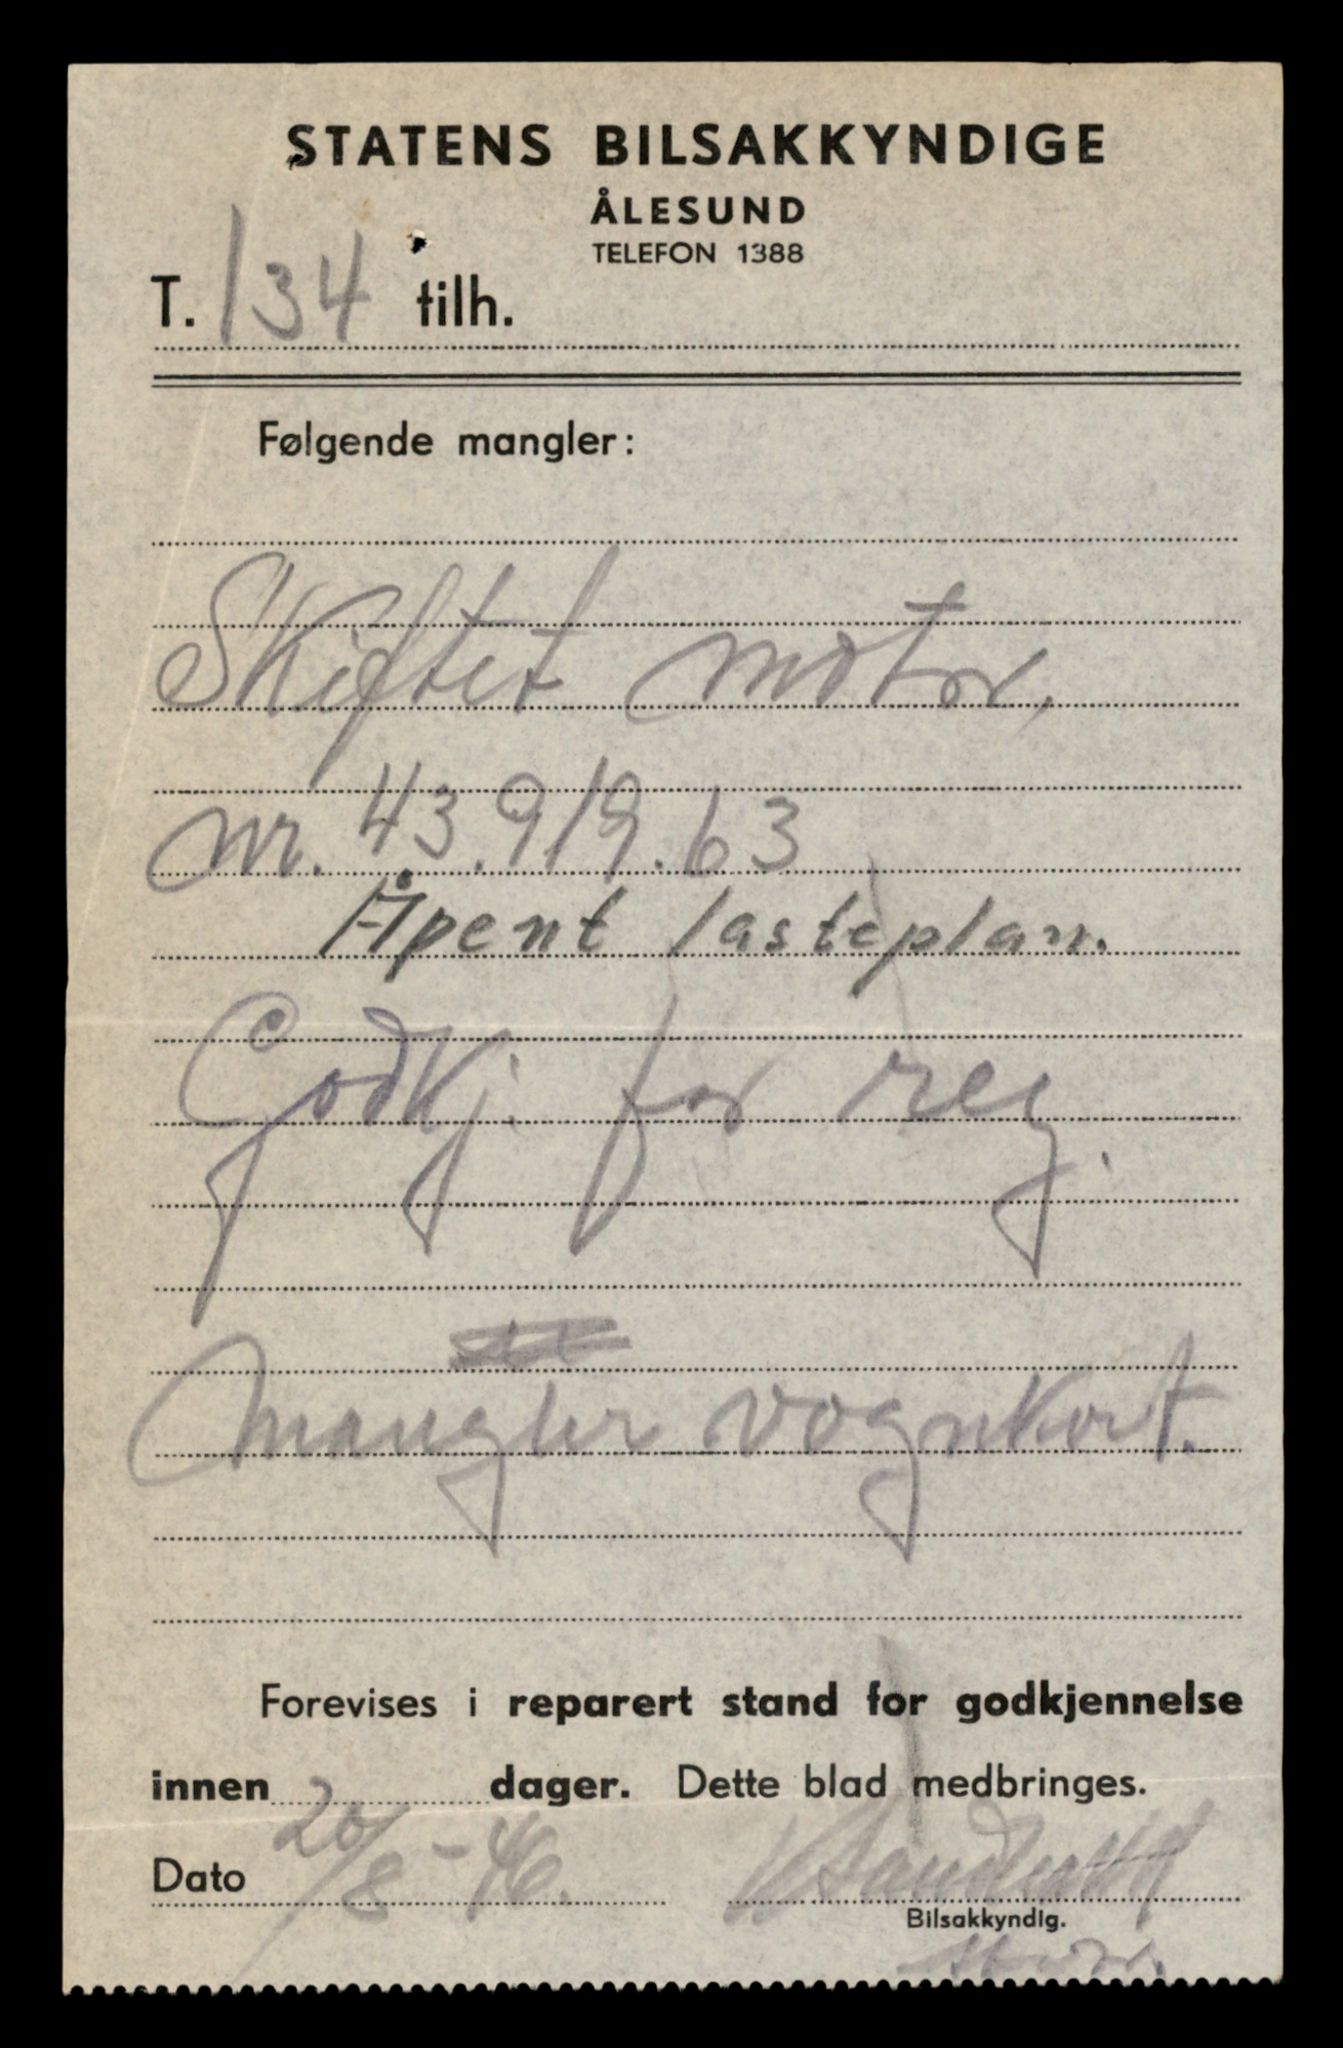 STATENS BILSAKKYNDIGE
ÅLESUND
TELEFON 1388
T. 134 tilh.
Følgende mangler:
Skiftet motor,
nr. 43.919.63
Åpent lasteplan.
Godkj. for reg.
Mangler vognkort.
Forevises i reparert stand for godkjennelse
innen dager. Dette blad medbringes.
Dato 20/8-46.
Bilsakkyndig.